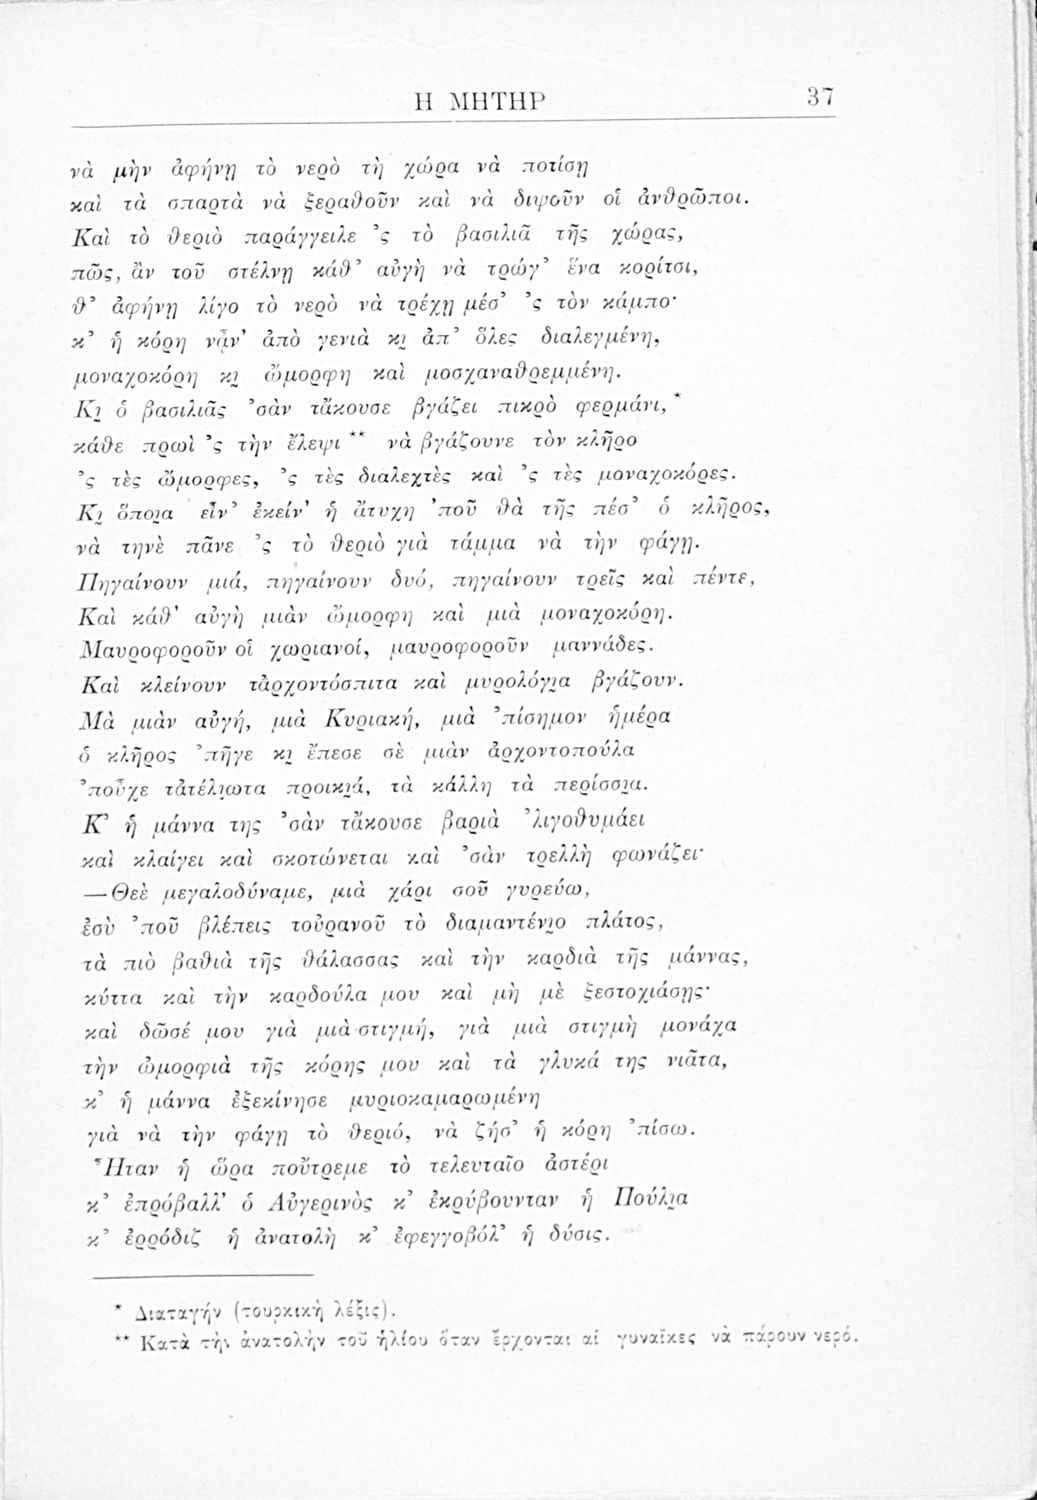 Η ΜΗΤΗΡ 37
νὰ μὴν ἀφήνῃ τὸ νερὸ τὴ χώρα νὰ ποτίσῃ
καὶ τὰ σπαρτὰ νὰ ξεραθοῦν καὶ νὰ διψοῦν οἱ ἀνθρῶποι.
Καὶ τὸ θεριὸ παράγγειλε ’ς τὸ βασιλιᾶ τῆς χώρας,
πῶς, ἂν τοῦ στέλνῃ κάθ’ αὐγὴ νὰ τρώγ’ ἕνα κορίτσι,
θ’ ἀφήνῃ λίγο τὸ νερὸ νὰ τρέχῃ μέσ’ ’ς τὸν κάμπο·
κ’ ἡ κόρη νἆν’ ἀπὸ γενιὰ κι̯ ἀπ’ ὅλες διαλεγμένη,
μοναχοκόρη κι̯ ὤμορφη καὶ μοσχαναθρεμμένη.
Κι̯ ὁ βασιλιᾶς ’σὰν τἄκουσε βγάζει πικρὸ φερμάνι,*
κάθε πρωὶ ’ς τὴν ἔλεψι** νὰ βγάζουνε τὸν κλῆρο
’ς τὲς ὤμορφες, ’ς τὲς διαλεχτὲς καὶ ’ς τὲς μοναχοκόρες.
Κι̯ ὅποι̯α εἶν’ ἐκείν’ ἡ ἄτυχη ’ποῦ θὰ τῆς πέσ’ ὁ κλῆρος,
νὰ τηνὲ πᾶνε ’ς τὸ θεριὸ γιὰ τάμμα νὰ τὴν φάγῃ.
Πηγαίνουν μιά, πηγαίνουν δυό, πηγαίνουν τρεῖς καὶ πέντε,
Καὶ κάθ’ αὐγὴ μιὰν ὤμορφη καὶ μιὰ μοναχοκόρη.
Μαυροφοροῦν οἱ χωριανοί, μαυροφοροῦν μαννάδες.
Καὶ κλείνουν τἀρχοντόσπιτα καὶ μυρολόγι̯α βγάζουν.
Μὰ μιὰν αὐγή, μιὰ Κυριακή, μιὰ ’πίσημον ἡμέρα
ὁ κλῆρος ’πῆγε κι̯ ἔπεσε σὲ μιὰν ἀρχοντοπούλα
’ποὖχε τἀτέλι̯ωτα προικι̯ά, τὰ κάλλη τὰ περίσσι̯α.
Κ’ ἡ μάννα της ’σὰν τἄκουσε βαριὰ ’λιγοθυμάει
καὶ κλαίγει καὶ σκοτώνεται καὶ ’σὰν τρελλὴ φωνάζει·
—Θεὲ μεγαλοδύναμε, μιὰ χάρι σοῦ γυρεύω,
ἐσὺ ’ποῦ βλέπεις τοὐρανοῦ τὸ διαμαντένι̯ο πλάτος,
τὰ πιὸ βαθιὰ τῆς θάλασσας καὶ τὴν καρδιὰ τῆς μάννας,
κύττα καὶ τὴν καρδούλα μου καὶ μὴ μὲ ξεστοχιάσῃς·
καὶ δῶσέ μου γιὰ μιὰ στιγμή, γιὰ μιὰ στιγμὴ μονάχα
τὴν ὠμορφιὰ τῆς κόρης μου καὶ τὰ γλυκά της νιᾶτα,
κ’ ἡ μάννα ἐξεκίνησε μυριοκαμαρωμένη
γιὰ νὰ τὴν φάγῃ τὸ θεριό, νὰ ζήσ’ ἡ κόρη ’πίσω.
Ἦταν ἡ ὥρα ποὔτρεμε τὸ τελευταῖο ἀστέρι
κ’ ἐπρόβαλλ’ ὁ Αὐγερινὸς κ’ ἐκρύβουνταν ἡ Πούλι̯α
κ’ ἐρρόδιζ ἡ ἀνατολὴ κ’ ἐφεγγοβόλ’ ἡ δύσις.
* Διαταγήν (τουρκικὴ λέξις).
** Κατὰ τὴν ἀνατολὴν τοῦ ἡλίου ὅταν ἔρχονται αἱ γυναῖκες νὰ πάρουν νερό.